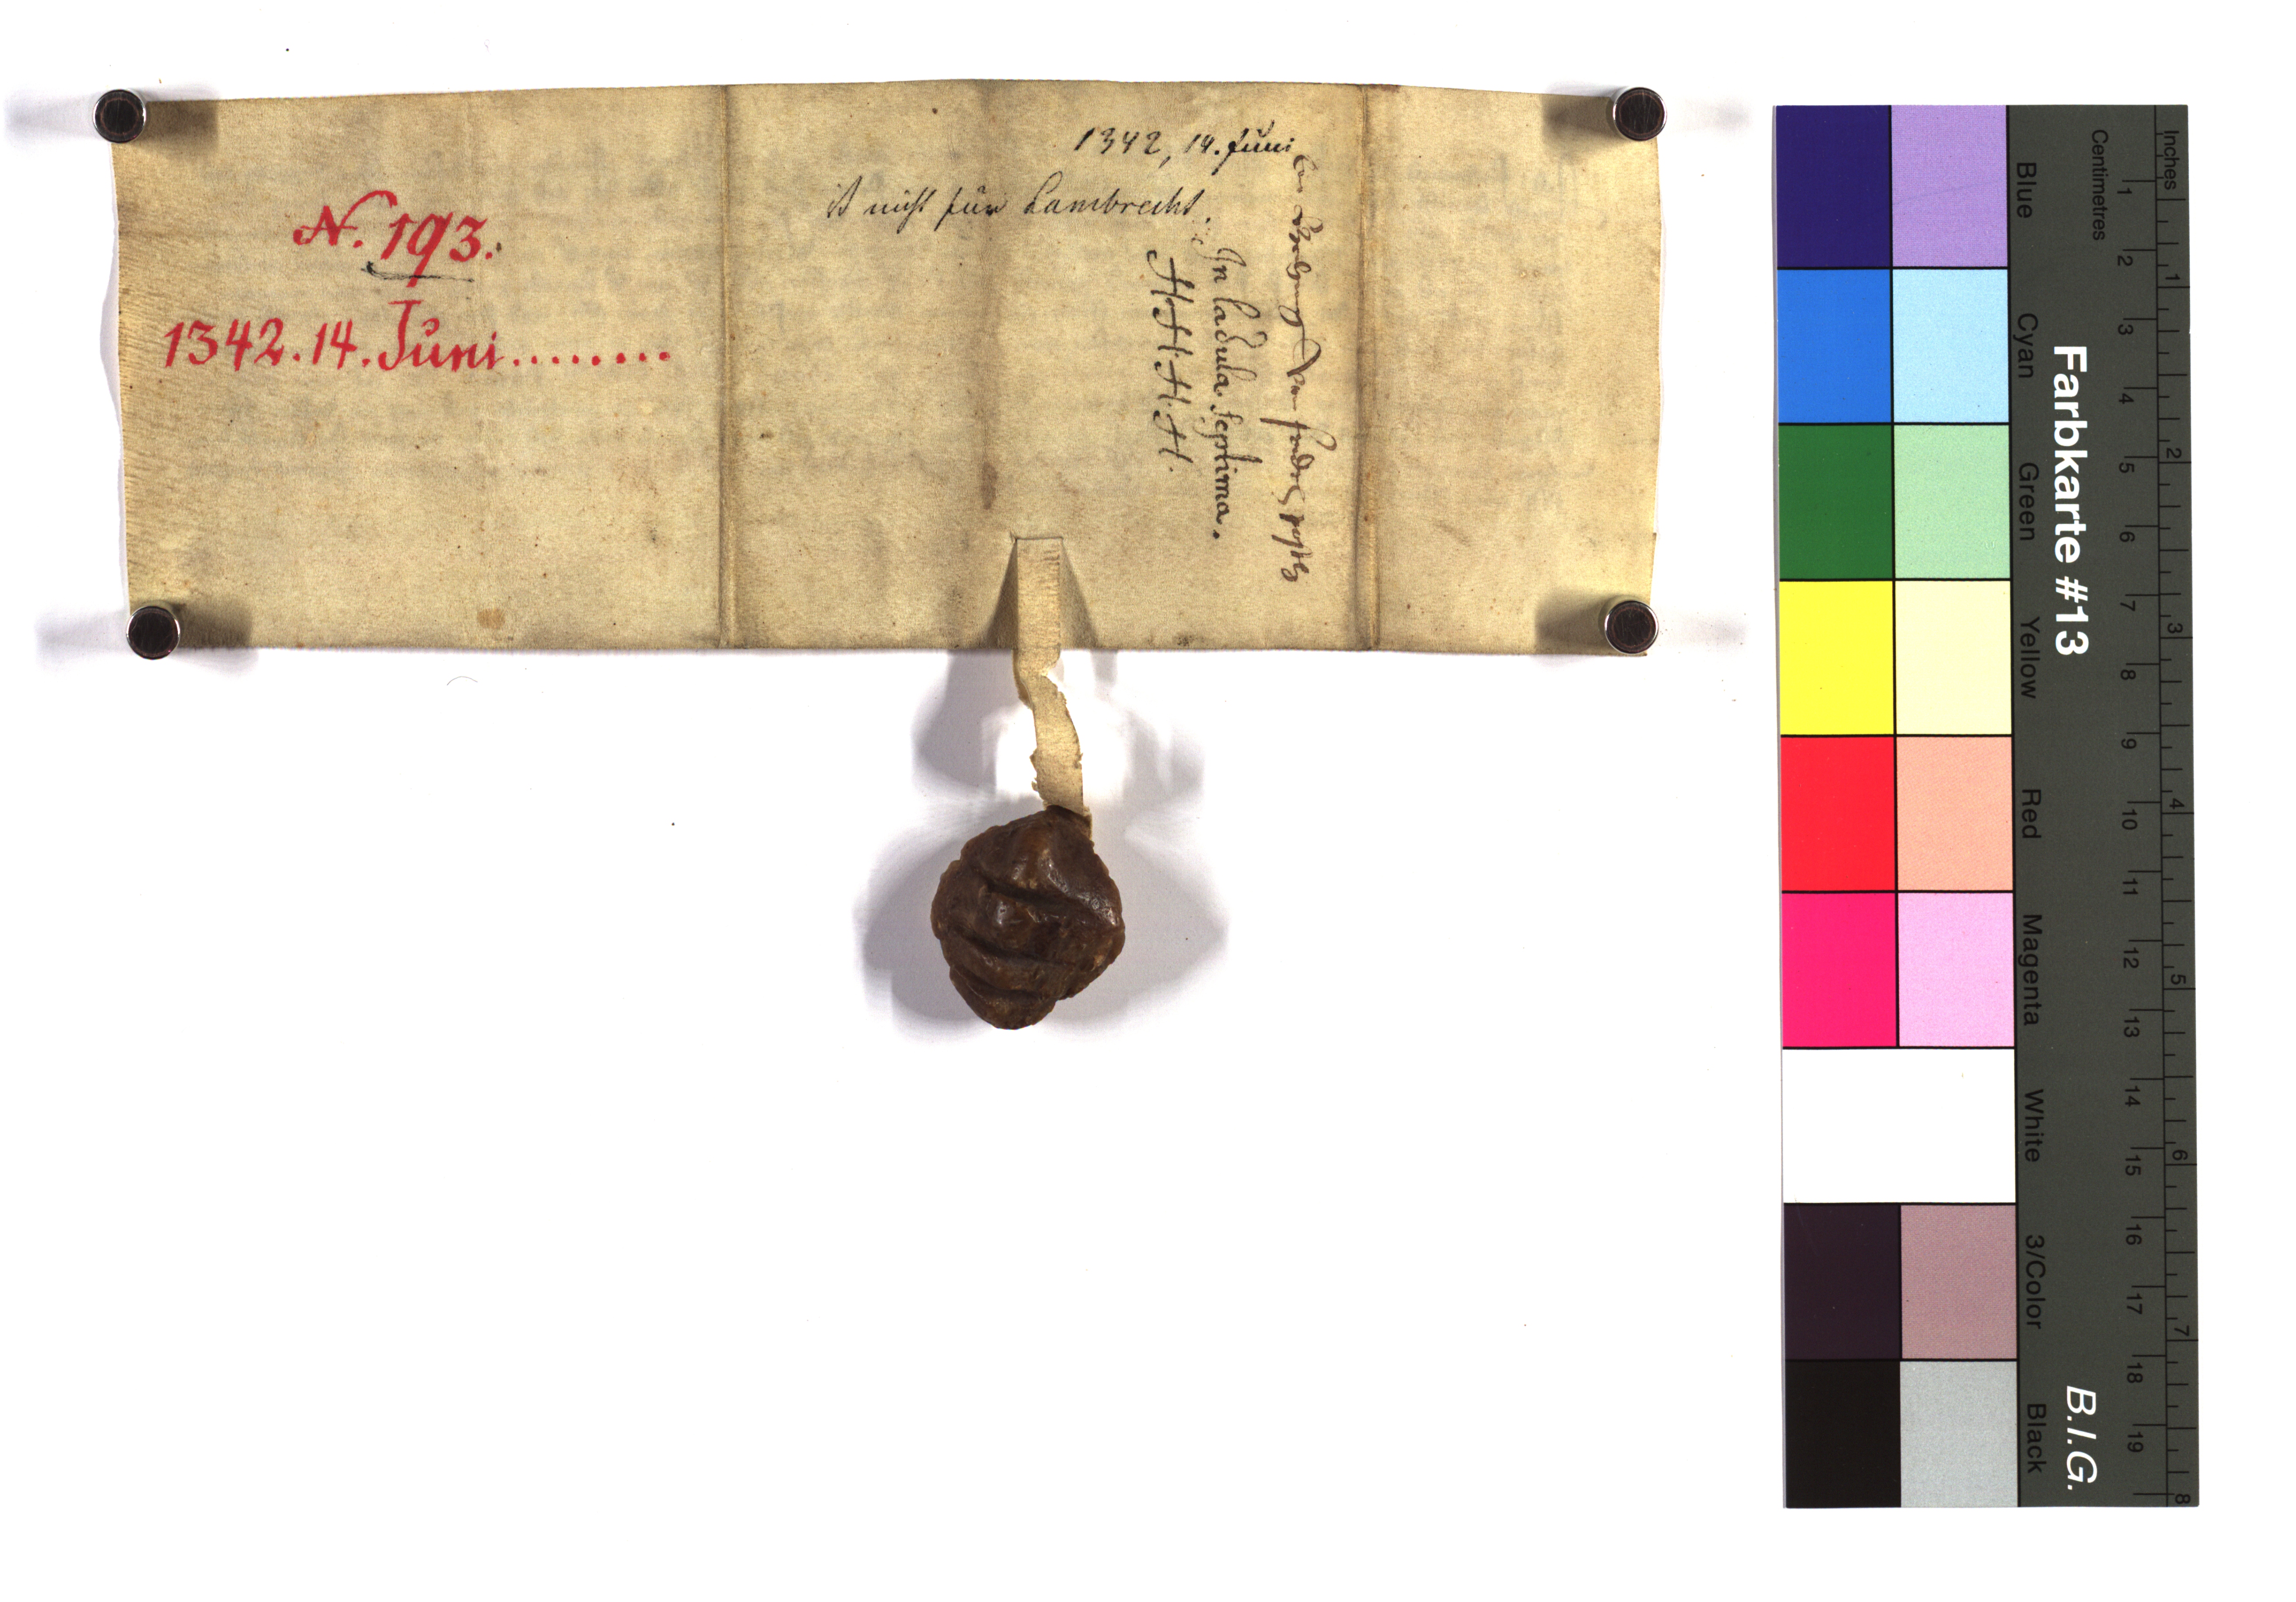 N. 193.
1342. 14. Juni........
1342, 14. Juni
ist nicht für Lambrecht.
In ladula Septima.
H. H. H. H.
Farbkarte #13
B.I.G.
Centimetres
Inches
Blue
Cyan
Green
Yellow
Red
Magenta
White
3/Color
Black
1 2 3 4 5 6 7 8 9 10 11 12 13 14 15 16 17 18 19
1 2 3 4 5 6 7 8